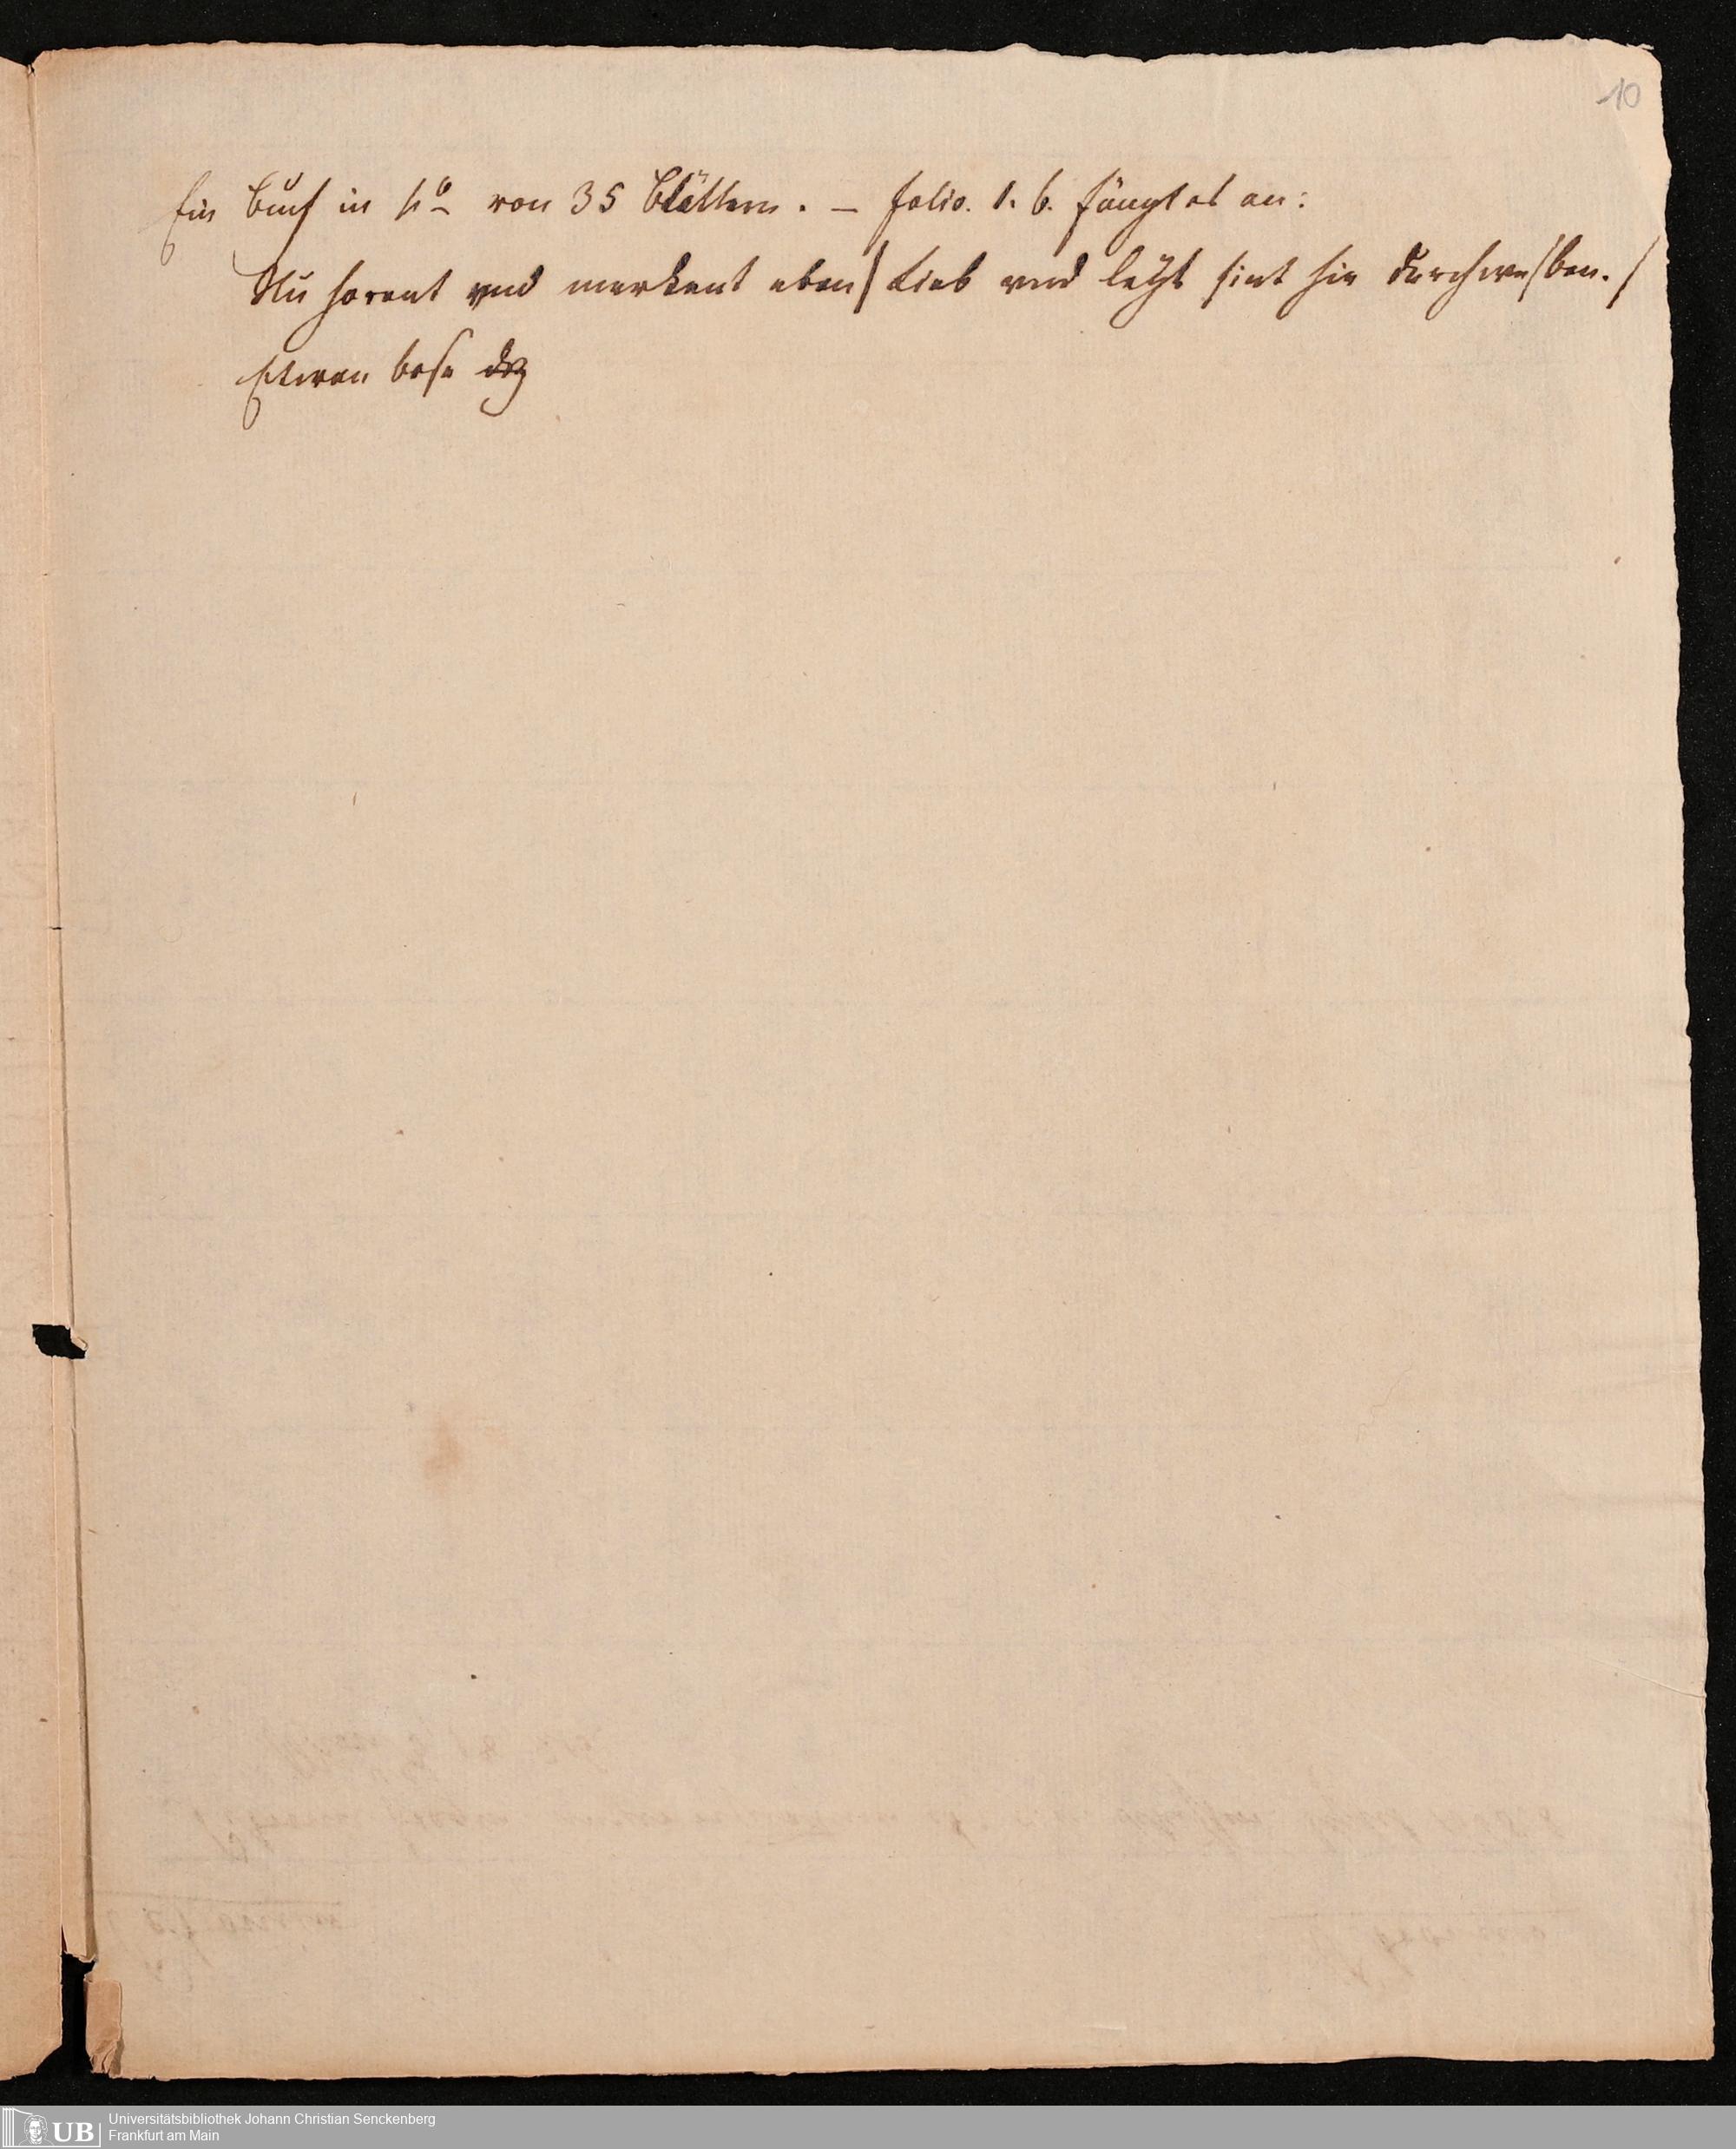 10
Ein Buch in 4º von 35 Blättern. – folio. 1. b. fängt es an:
Nu horent vnd merkent eben/ Lieb vnd leyt sint hie durchweben./
Etwan bose dz
UB Universitätsbibliothek Johann Christian Senckenberg
Frankfurt am Main